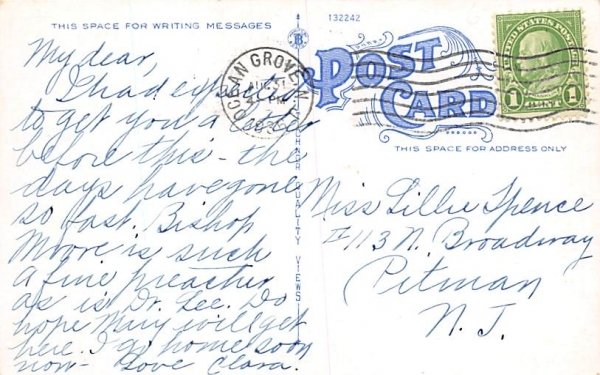 THIS SPACE FOR WRITING MESSAGES
My dear,
I had expected
to get you a letter
before this - the
days have gone
so fast. Bishop
Moore is such
a fine preacher
as is Dr. Lee. Do
hope Mary will get
here. I go home soon
now - Love Clara.
OCEAN GROVE N.J.
AUG
PM
QUALITY VIEWS
B
132242
POST
CARD
THIS SPACE FOR ADDRESS ONLY
UNITED STATES POSTAGE
1 CENT 1
Miss Lillie Spence
113 N. Broadway
Pitman
N. J.